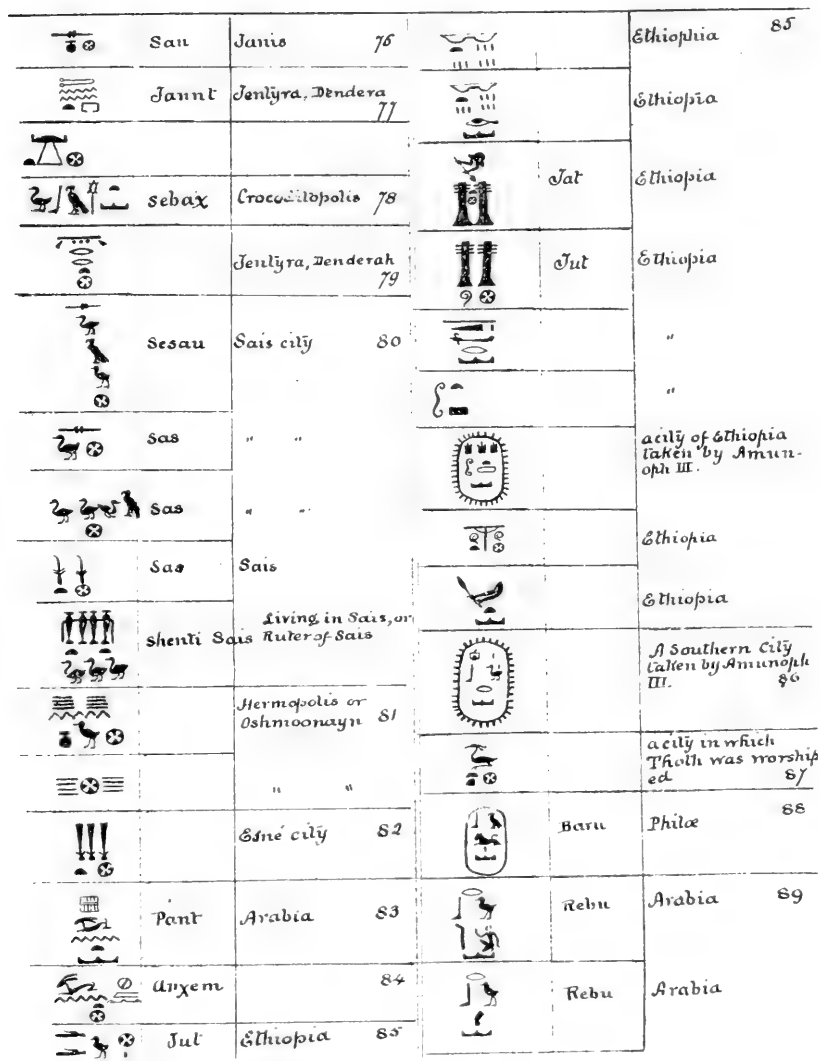 San Janis 76
Jannt Jentyra, Dendera
77
sebax Crocodilopolis 78
Jentyra, Denderah
79
Sesau Sais city 80
Sas " "
Sas " "
Sas Sais
Shenti Sais Living in Sais, or
Ruter of Sais
Hermopolis or
Oshmoonayn 81
" "
Esné city 82
Pant Arabia 83
Anxem 84
Jut Ethiopia 85
Ethiophia 85
Ethiopia
Jat Ethiopia
Jut Ethiopia
"
"
a city of Ethiopia
taken by Amun-
oph III.
Ethiopia
Ethiopia
A Southern City
taken by Amunoph
III. 86
a city in which
Thoth was worship
ed 87
Baru Philæ 88
Rebu Arabia 89
Rebu Arabia